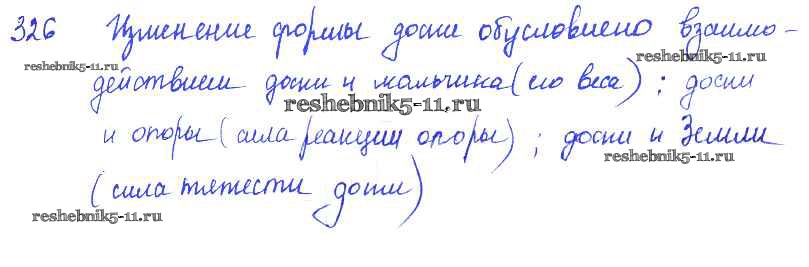 326 Изменение формы доски обусловлено взаимо-
reshebnik5-11.ru reshebnik5-11.ru
действием доски и мальчика (его веса); доски
reshebnik5-11.ru
и опоры (сила реакции опоры); доски и Земли
reshebnik5-11.ru
(сила тяжести доски)
reshebnik5-11.ru